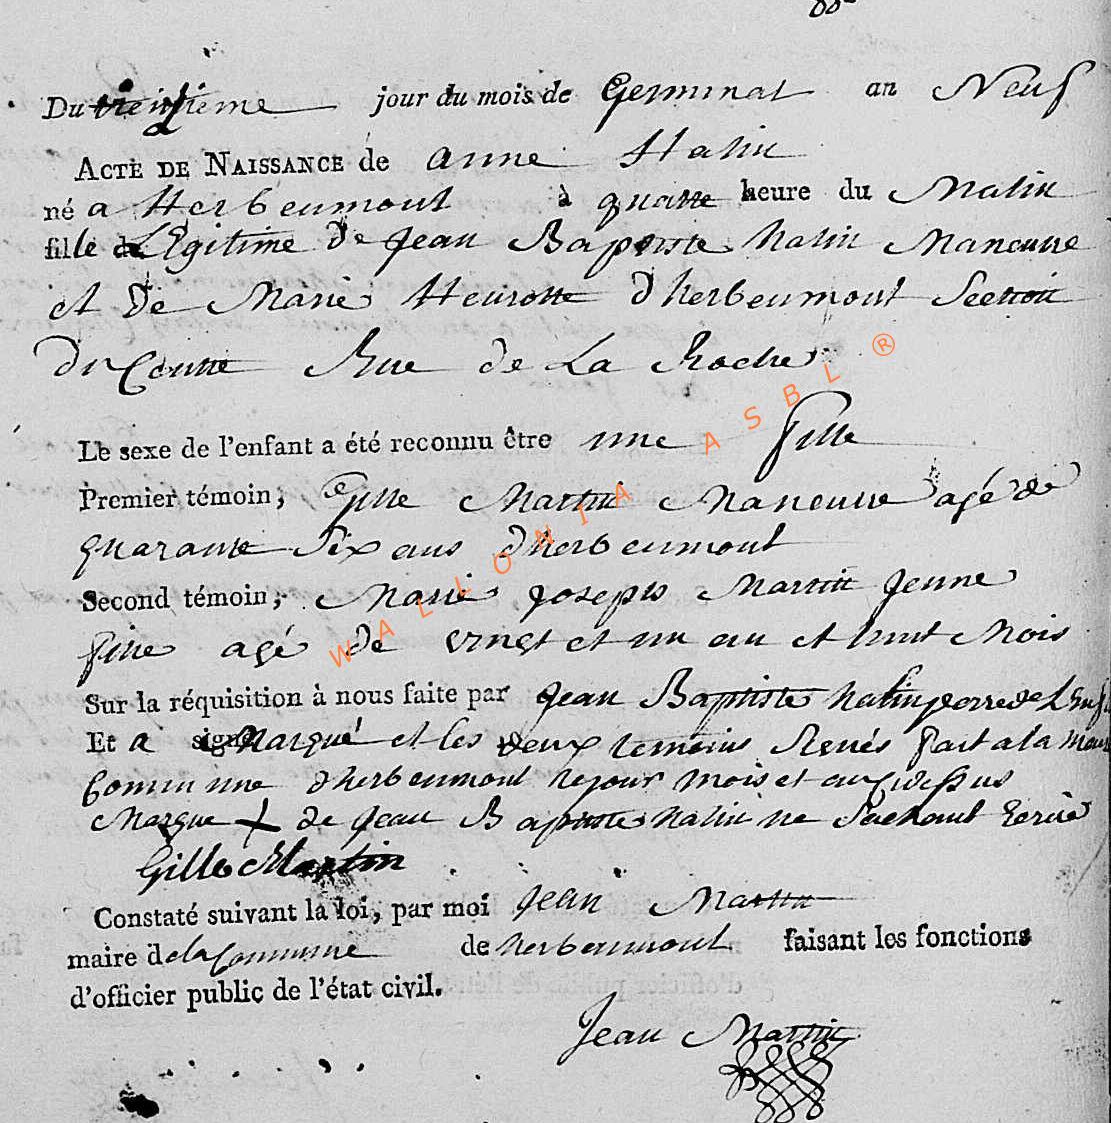 Du treizieme jour du mois de Germinal an Neuf
ACTE DE NAISSANCE de anne Halin
né a Herbeumont à quatre heure du Matin
fille de LEgitime de Jean Baptiste halin Maneuvre
et De Marie Heurotte dherbeumont Section
du Centre Rue de La Roche
Le sexe de l'enfant a été reconnu être une fille
Premier témoin, Gille Martin Maneuvre agé de
quarante Six ans dherbeumont
Second témoin, Marie Joseph Martin Jeune
fille agé de vingt et un an et huit Mois
Sur la réquisition à nous faite par Jean Baptiste halin perre de L'enf
Et a signé Marqué et les deux temoins Signés fait a la
Commune dherbeumont le jour mois et an cidessus
Marque + de Jean Baptiste halin ne Sachant Ecrire
Gille Martin
Constaté suivant la loi, par moi Jean Martin
maire de la Commune de herbeumont faisant les fonctions
d'officier public de l'état civil.
Jean Martin
WALLONIA ASBL ®